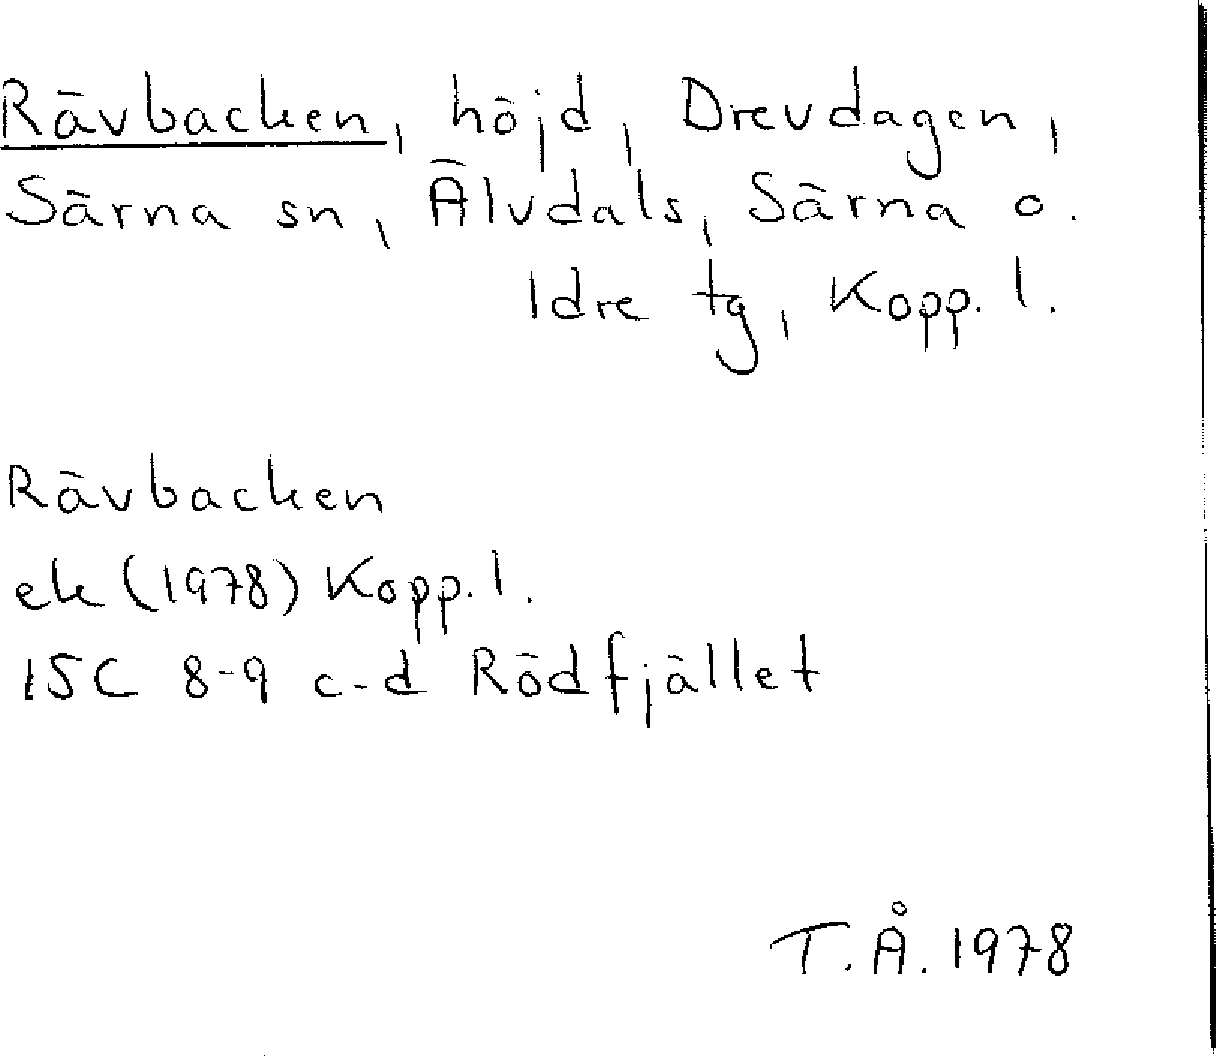 Rävbacken, höjd, Drevdagen,
Särna sn, Älvdals, Särna o.
Idre tg, Kopp. l.
Rävbacken
ek (1978) Kopp. l.
15C 8-9 c-d Rödfjället
T.Å. 1978